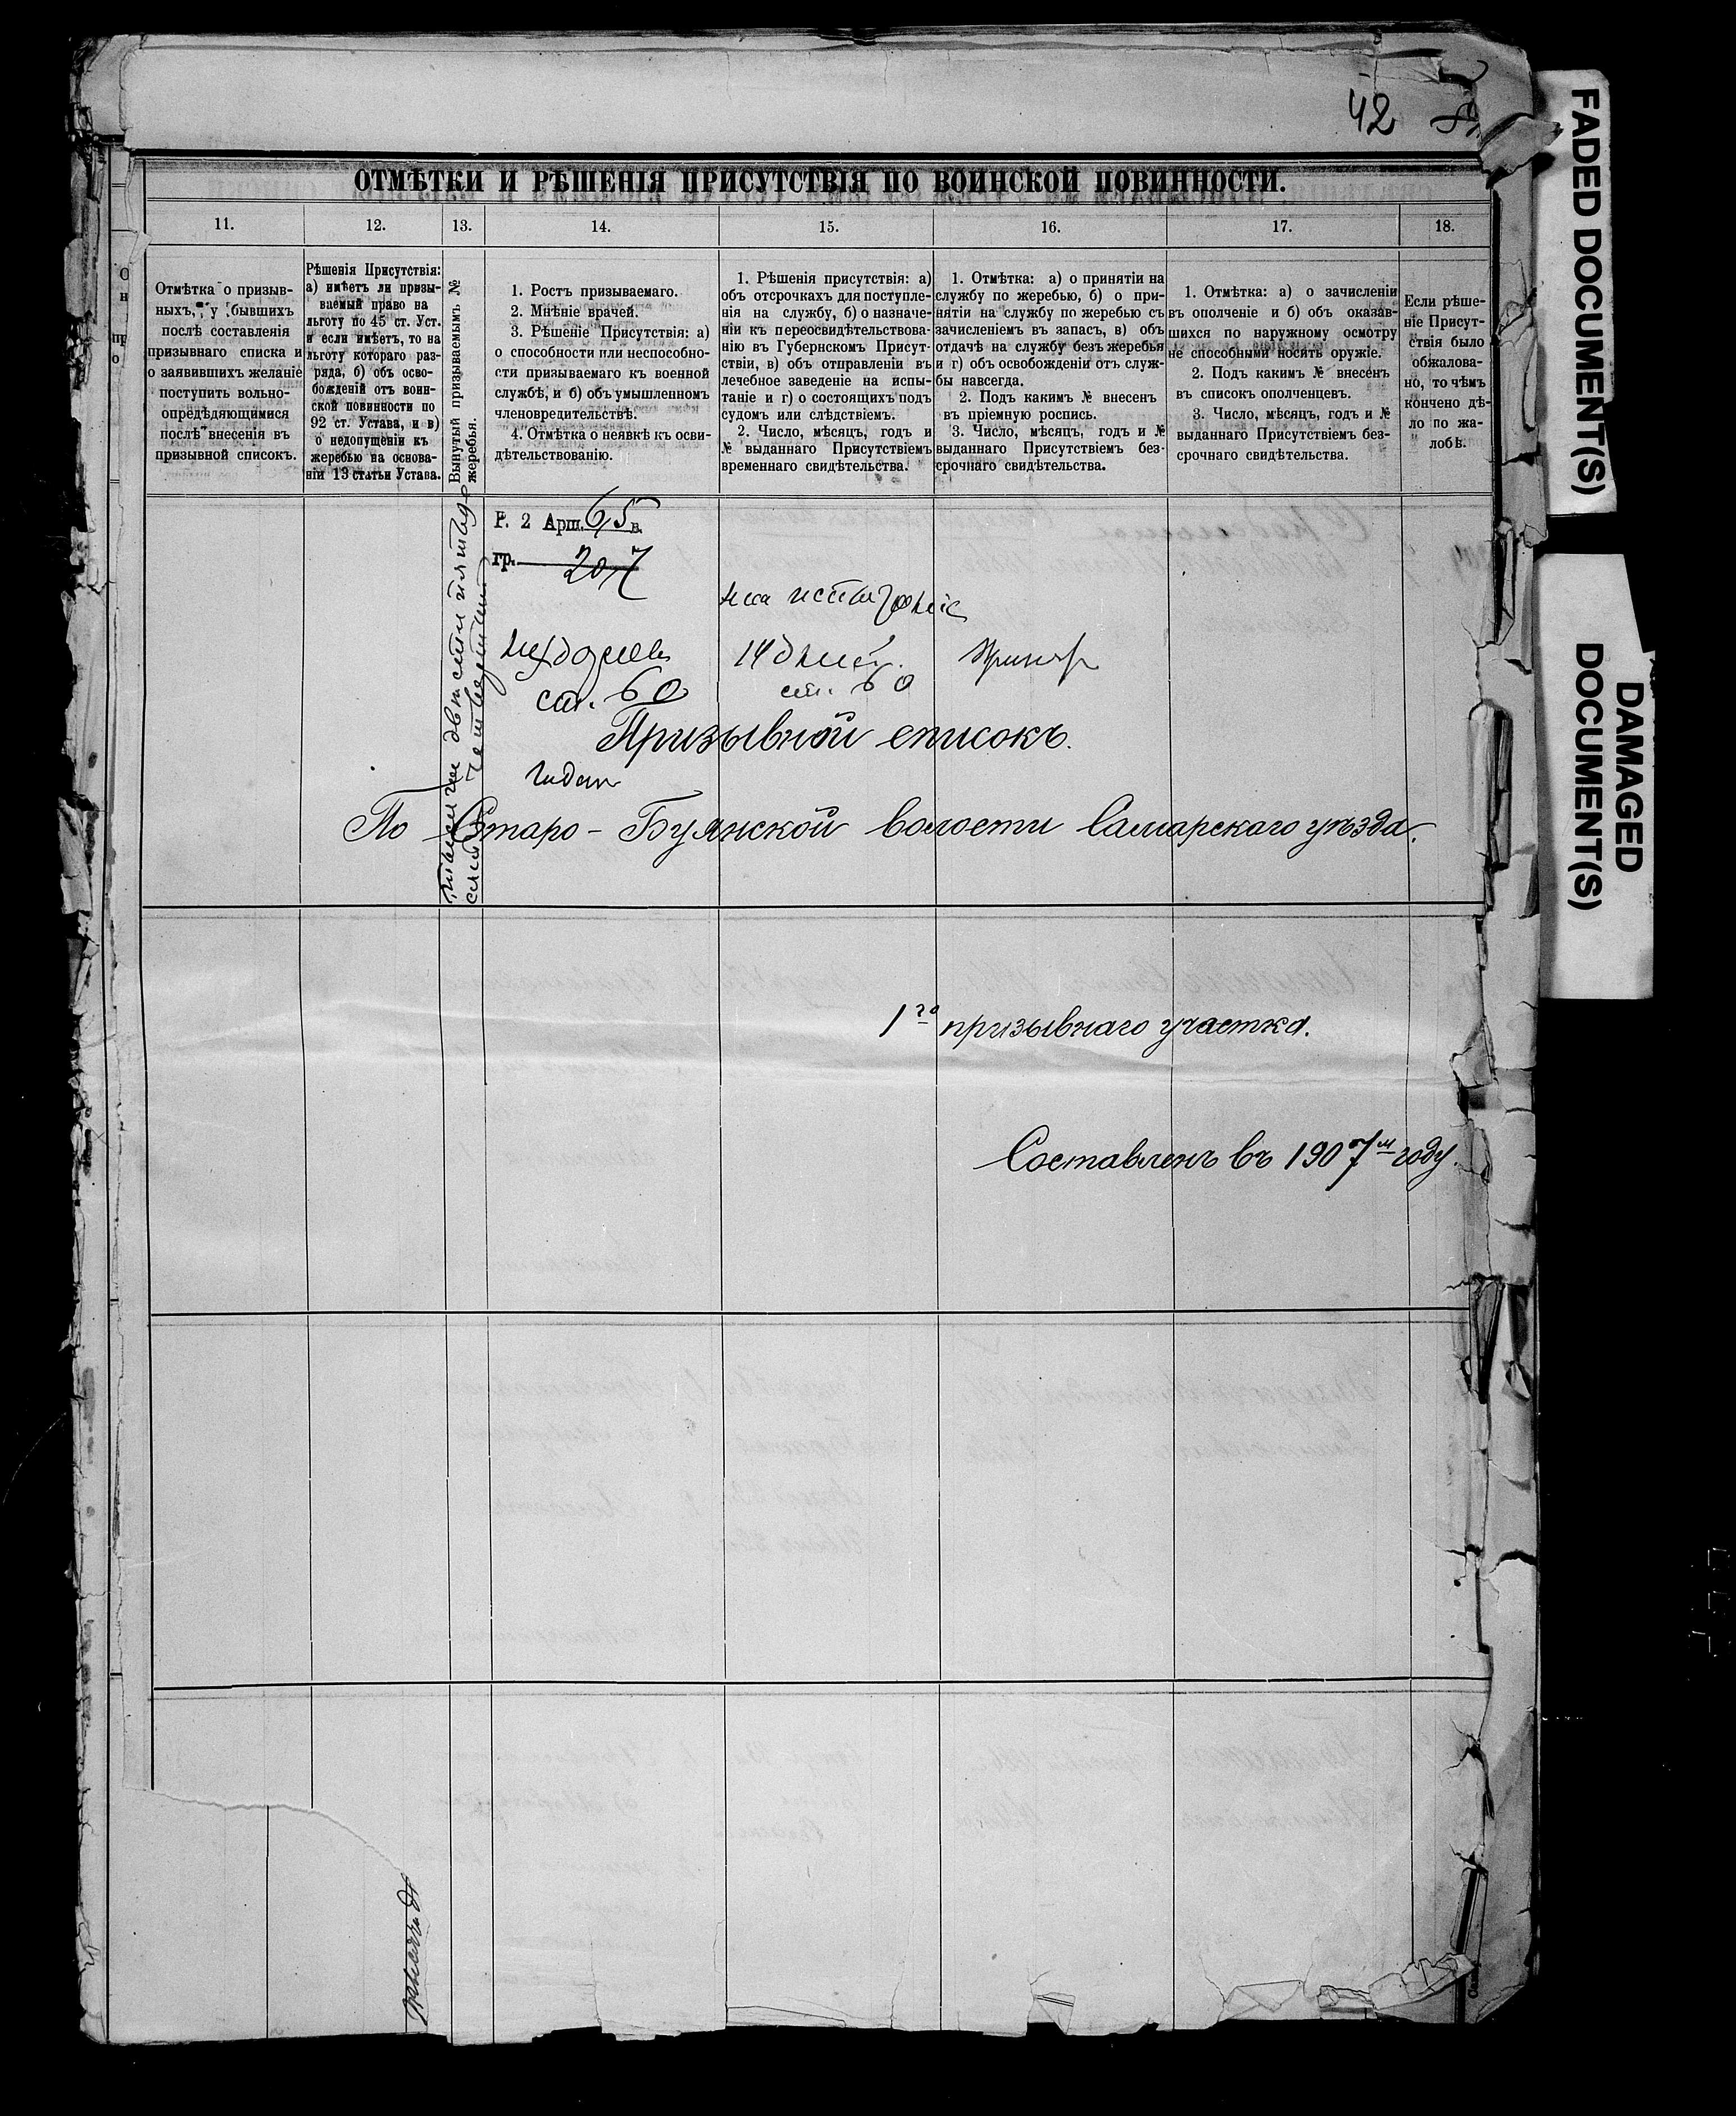 42
ОТМѢТКИ И РѢШЕНІЯ ПРИСУТСТВІЯ ПО ВОИНСКОЙ ПОВИННОСТИ.
11.
12.
13.
14.
15.
16.
17.
18.
Отмѣтка о призыв-
ныхъ, у бывшихъ
послѣ составленія
призывнаго списка и
о заявившихъ желаніе
поступить вольно-
опредѣдяющимися
послѣ внесенія въ
призывной списокъ.
Рѣшенія Присутствія:
а) имѣетъ ли призы-
ваемый право на
льготу по 45 ст. Уст.
и если имѣетъ, то на
льготу котораго раз-
ряда, б) объ осво-
божденіи отъ воин-
ской повинности по
92 ст. Устава, и в)
о недопущеніи къ
жеребью на основа-
ніи 13 статьи Устава.
Вынутый призываемымъ №
жеребья.
1. Ростъ призываемаго.
2. Мнѣніе врачей.
3. Рѣшеніе Присутствія: а)
о способности или неспособно-
сти призываемаго къ военной
службѣ, и б) объ умышленномъ
членовредительствѣ.
4. Отмѣтка о неявкѣ къ осви-
дѣтельствованію.
1. Рѣшенія присутствія: а)
объ отсрочкахъ для поступле-
нія на службу, б) о назначе-
ніи къ переосвидѣтельствова-
нію въ Губернскомъ Присут-
ствіи, в) объ отправленіи въ
лечебное заведеніе на испы-
таніе и г) о состоящихъ подъ
судомъ или слѣдствіемъ.
2. Число, мѣсяцъ, годъ и
№ выданнаго Присутствіемъ
временнаго свидѣтельства.
1. Отмѣтка: а) о принятіи на
службу по жеребью, б) о при-
нятіи на службу по жеребью съ
зачисленіемъ въ запасъ, в) объ
отдачѣ на службу безъ жеребья
и г) объ освобожденіи отъ служ-
бы навсегда.
2. Подъ какимъ № внесенъ
въ пріемную роспись.
3. Число, мѣсяцъ, годъ и №
выданнаго Присутствіемъ без-
срочнаго свидѣтельства.
1. Отмѣтка: а) о зачисленіи
въ ополченіе и б) объ оказав-
шихся по наружному осмотру
не способными носить оружіе.
2. Подъ какимъ № внесенъ
въ списокъ ополченцевъ.
3. Число, мѣсяцъ, годъ и №
выданнаго Присутствіемъ без-
срочнаго свидѣтельства.
Если рѣше-
ніе Присут-
ствія было
обжалова-
но, то чѣмъ
кончено дѣ-
ло по жа-
лобѣ.
Р. 2 Арш. 6,5 в.
гр. 20,7
на испытаніе
14 дней.
ст. 60
ст. 60
Призывной списокъ.
годен
По Старо-Буянской волости Самарскаго уѣзда.
1го призывнаго участка.
Составленъ въ 1907м году.
FADED DOCUMENT(S)
DAMAGED
DOCUMENT(S)